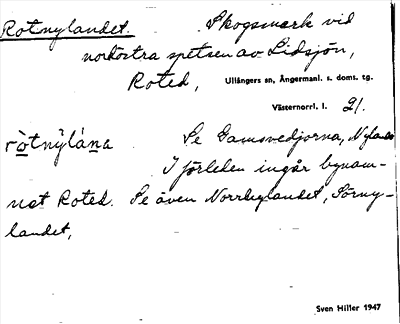 Rotnylandet. Skogsmark vid
nordöstra spetsen av Lidsjön,
Roted, Ullångers sn, Ångermanl. s. doms. tg.
Västernorrl. l. 21.
ròtnỳlána Se Gamsvedjorna, Nyland
I förleden ingår bynam-
net Roted. Se även Norrnylandet, Sörny-
landet,
Sven Hiller 1947